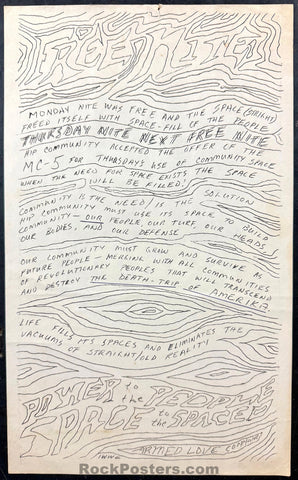 FREE NITE
MONDAY NITE WAS FREE AND THE SPACE
FREED ITSELF WITH SPACE-FILL OF THE PEOPLE
THURSDAY NITE NEXT FREE NITE
HIP COMMUNITY ACCEPTED THE OFFER OF THE
MC-5 FOR THURSDAYS USE OF COMMUNITY SPACE
WHEN THE NEED FOR SPACE EXISTS THE SPACE
WILL BE FILLED!
COMMUNITY IS THE NEED / IS THE SOLUTION
HIP COMMUNITY MUST USE ITS SPACE TO BUILD
COMMUNITY - OUR PEOPLE OUR TURF OUR HEADS
OUR BODIES, AND OUR DEFENSE
OUR COMMUNITY MUST GROW AND SURVIVE AS
FUTURE PEOPLE - MERGING WITH ALL COMMUNITIES
OF REVOLUTIONARY PEOPLES THAT WILL TRANSCEND
AND DESTROY THE DEATH-TRIP OF AMERIKA
LIFE FILLS ITS SPACES AND ELIMINATES THE
VACUUMS OF STRAIGHT/OLD REALITY
POWER to the PEOPLE
SPACE to the SPACED
ARMED LOVE
RockPosters.com